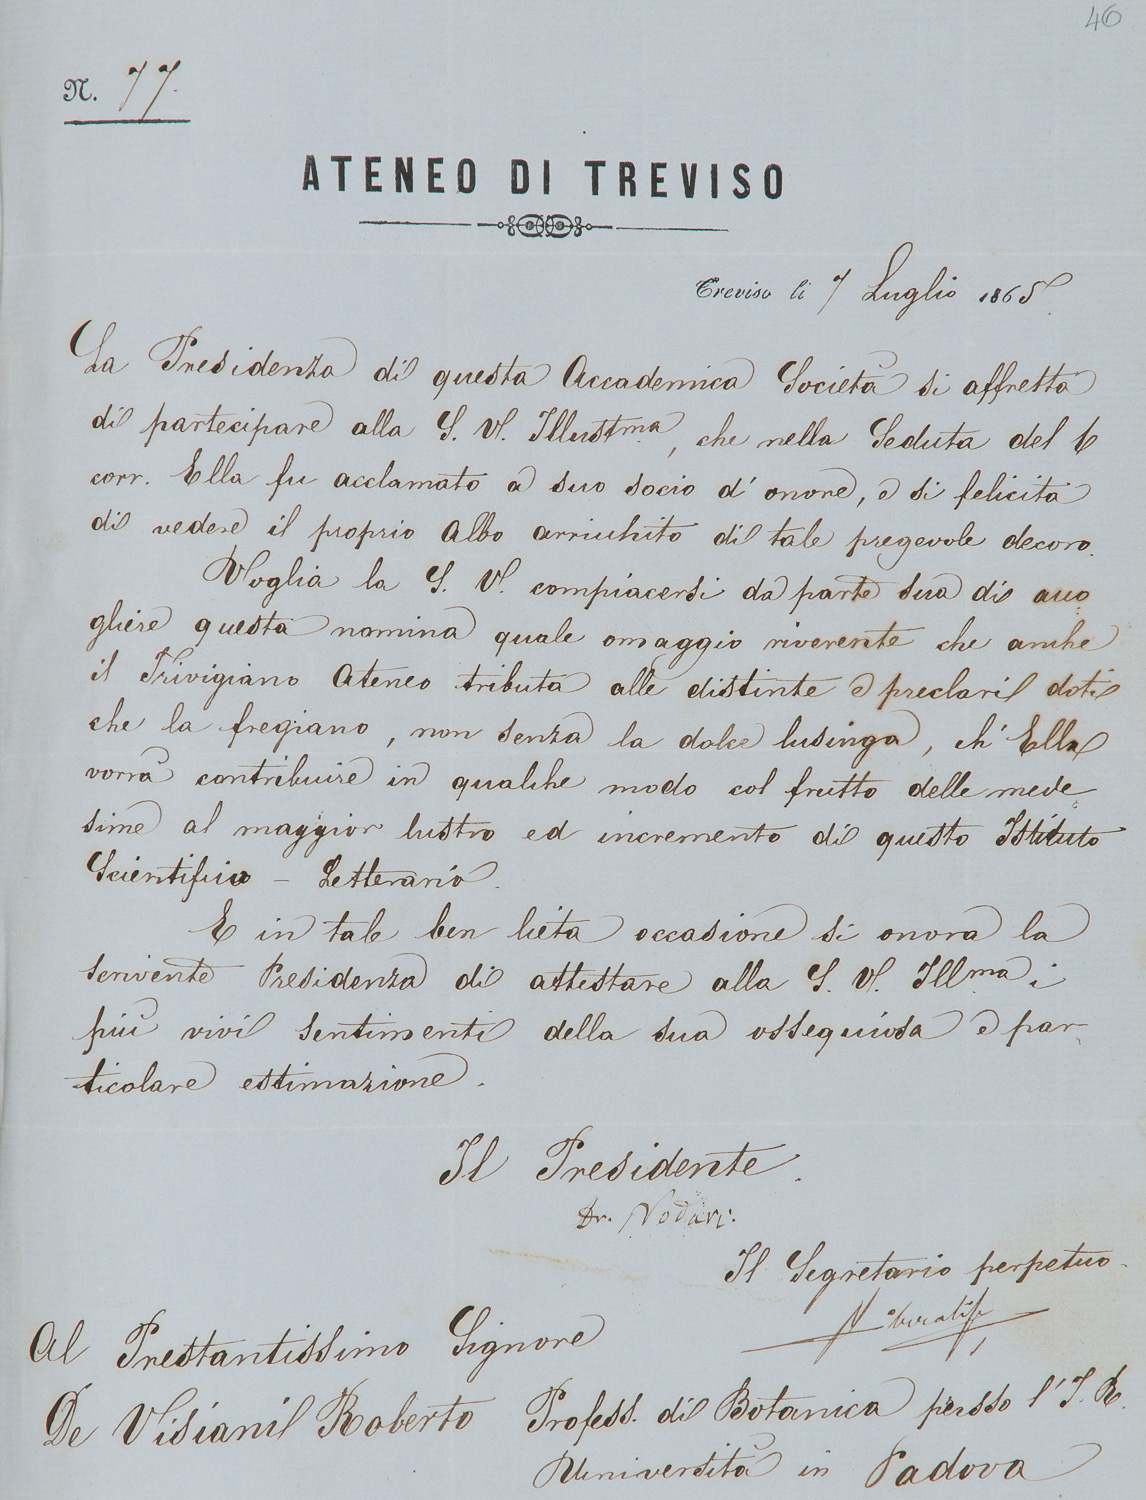 46
N. 77.
ATENEO DI TREVISO
Treviso li 7 Luglio 1865.
La Presidenza di questa Accademica Società si affretta
di partecipare alla S. V. Illustma, che nella Seduta del 6
corr. Ella fu acclamato a suo socio d'onore, e si felicita
di vedere il proprio Albo arricchito di tale pregevole decoro.
Voglia la S. V. compiacersi da parte sua di acco
gliere questa nomina quale omaggio riverente che anche
il Trivigiano Ateneo tributa alle distinte e preclari doti
che la fregiano, non senza la dolce lusinga, ch' Ella
vorrà contribuire in qualche modo col frutto delle mede
sime al maggior lustro ed incremento di questo Istituto
Scientifico - Letterario.
E in tale ben lieta occasione si onora la
scrivente Presidenza di attestare alla S. V. Illma i
più vivi sentimenti della sua ossequiosa e par-
ticolare estimazione.
Il Presidente.
Dr. Nodari.
Il Segretario perpetuo.
Al Prestantissimo Signore
De Visiani Roberto Profess. di Botanica presso l'I. R.
Università in Padova